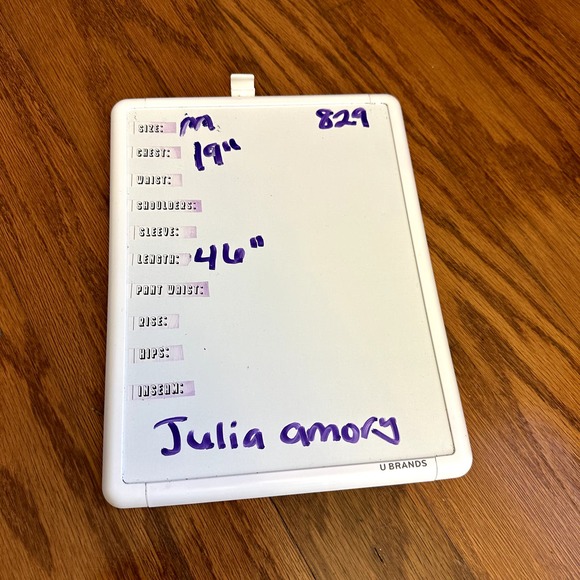 SIZE: m 829
CHEST: 19"
WAIST:
SHOULDERS:
SLEEVE:
LENGTH: 46"
PANT WAIST:
RISE:
HIPS:
INSEAM:
Julia amory
U BRANDS